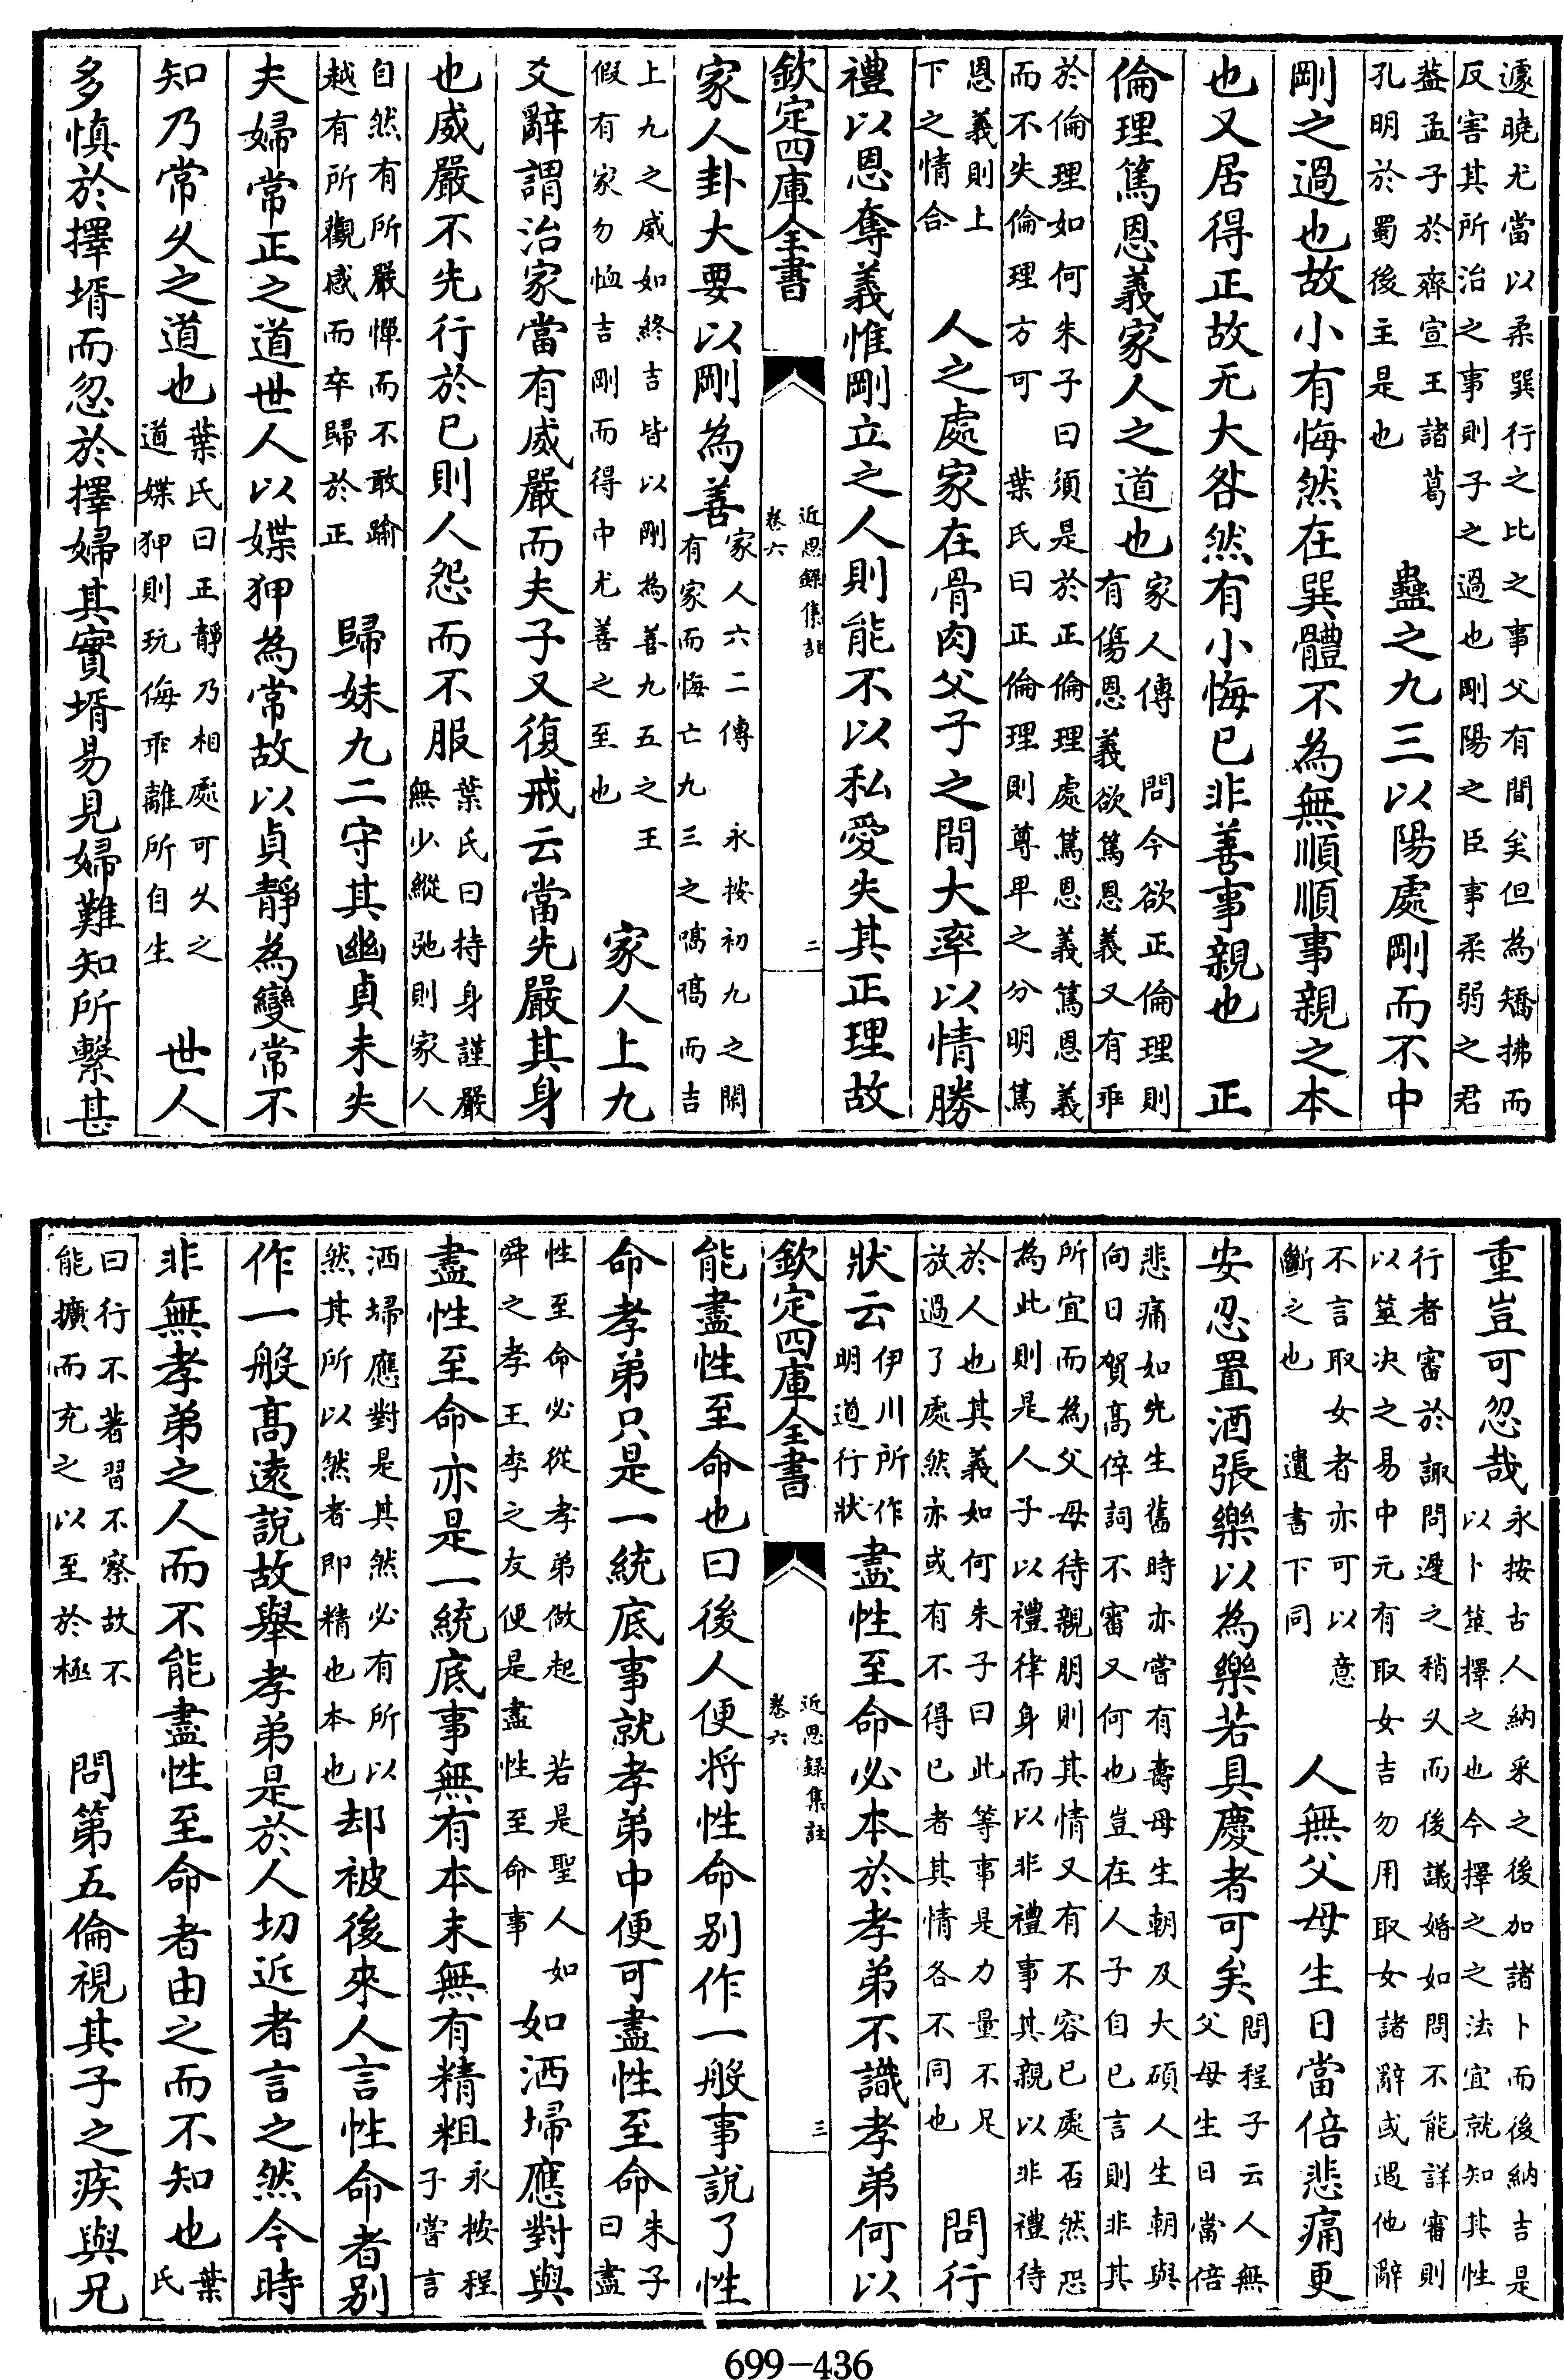 遽曉尤當以柔巽行之比之事父有間矣但為矯拂而
反害其所治之事則子之過也剛陽之臣事柔弱之君
葢孟子於齊宣王諸葛
孔明於蜀後主是也
蠱之九三以陽處剛而不中
剛之過也故小有悔然在巽體不為無順順事親之本
也又居得正故无大咎然有小悔已非善事親也
正
倫理篤恩義家人之道也
家人傳 問今欲正倫理則
有傷恩義欲篤恩義又有乖
於倫理如何朱子曰須是於正倫理處篤恩義篤恩義
而不失倫理方可 葉氏曰正倫理則尊卑之分明篤
恩義則上
下之情合
人之處家在骨肉父子之間大率以情勝
禮以恩奪義惟剛立之人則能不以私愛失其正理故
欽定四庫全書
近思錄集註
卷六
二
家人卦大要以剛為善
家人六二傳 永按初九之閑
有家而悔亡九三之嗃嗃而吉
上九之威如終吉皆以剛為善九五之王
假有家勿恤吉剛而得中尤善之至也
家人上九
爻辭謂治家當有威嚴而夫子又復戒云當先嚴其身
也威嚴不先行於已則人怨而不服
葉氏曰持身謹嚴
無少縱弛則家人
自然有所嚴憚而不敢踰
越有所觀感而卒歸於正
歸妹九二守其幽貞未失
夫婦常正之道世人以媟狎為常故以貞靜為變常不
知乃常久之道也
葉氏曰正靜乃相處可久之
道媟狎則玩侮乖離所自生
世人
多慎於擇壻而忽於擇婦其實壻易見婦難知所繫甚
重豈可忽哉
永按古人納采之後加諸卜而後納吉是
以卜筮擇之也今擇之之法宜就知其性
行者審於諏問遲之稍久而後議婚如問不能詳審則
以筮决之易中元有取女吉勿用取女諸辭或遇他辭
不言取女者亦可以意
斷之也 遺書下同
人無父母生日當倍悲痛更
安忍置酒張樂以為樂若具慶者可矣
問程子云人無
父母生日當倍
悲痛如先生舊時亦嘗有壽母生朝及大碩人生朝與
向日賀高倅詞不審又何也豈在人子自已言則非其
所宜而為父母待親朋則其情又有不容已處否然恐
為此則是人子以禮律身而以非禮事其親以非禮待
於人也其義如何朱子曰此等事是力量不足
放過了處然亦或有不得已者其情各不同也
問行
狀云
伊川所作
明道行狀
盡性至命必本於孝弟不識孝弟何以
欽定四庫全書
近思録集註
卷六
三
能盡性至命也曰後人便將性命别作一般事說了性
命孝弟只是一統底事就孝弟中便可盡性至命
朱子
曰盡
性至命必從孝弟做起 若是聖人如
舜之孝王季之友便是盡性至命事
如洒埽應對與
盡性至命亦是一統底事無有本末無有精粗
永按程
子嘗言
洒埽應對是其然必有所以
然其所以然者即精也本也
却被後來人言性命者别
作一般高遠說故舉孝弟是於人切近者言之然今時
非無孝弟之人而不能盡性至命者由之而不知也
葉
氏
曰行不著習不察故不
能擴而充之以至於極
問第五倫視其子之疾與兄
699-436